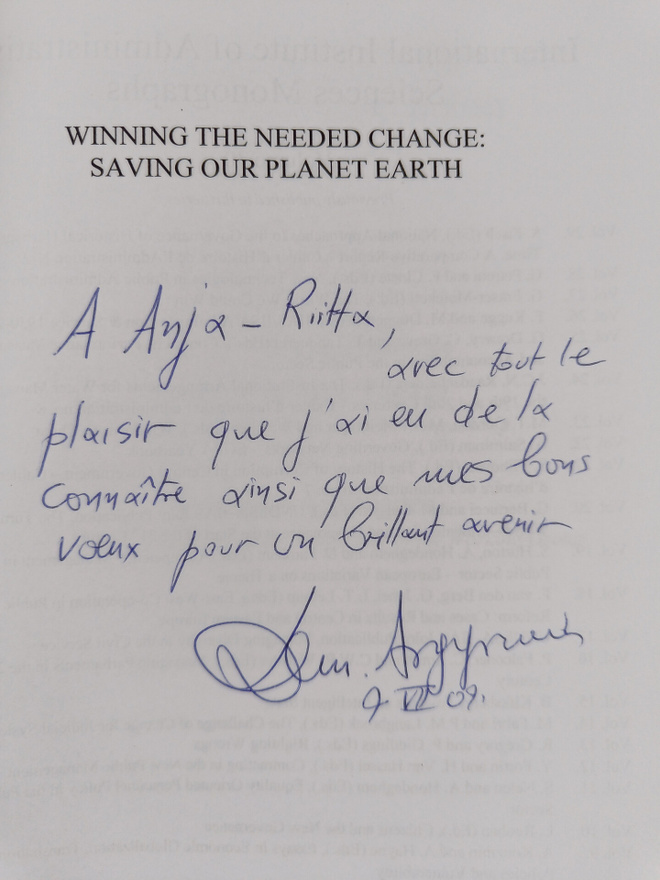 WINNING THE NEEDED CHANGE:
SAVING OUR PLANET EARTH
A Anja-Riitta,
avec tout le
plaisir que j'ai eu de la
connaître ainsi que mes bons
voeux pour un brillant avenir
Dem. Argyriades
9 VII 09.